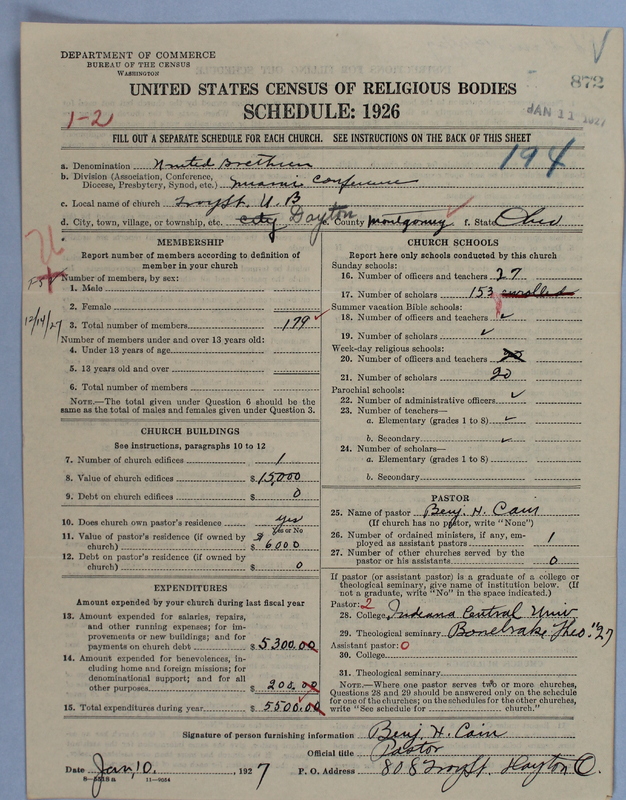 DEPARTMENT OF COMMERCE
BUREAU OF THE CENSUS
WASHINGTON
872
UNITED STATES CENSUS OF RELIGIOUS BODIES
JAN 11 1927
SCHEDULE: 1926
1-2
FILL OUT A SEPARATE SCHEDULE FOR EACH CHURCH. SEE INSTRUCTIONS ON THE BACK OF THIS SHEET
194
a. Denomination United Brethren
b. Division (Association, Conference, Diocese, Presbytery, Synod, etc.) Miami Conference
c. Local name of church Troy St. U. B
d. City, town, village, or township, etc. City Dayton e. County Montgomery f. State Ohio
MEMBERSHIP
Report number of members according to definition of
member in your church
Number of members, by sex:
1. Male
2. Female
12/14/27
3. Total number of members 179
Number of members under and over 13 years old:
4. Under 13 years of age
5. 13 years old and over
6. Total number of members
NOTE.—The total given under Question 6 should be
same as the total of males and females given under Question 3.
CHURCH BUILDINGS
See instructions, paragraphs 10 to 12
7. Number of church edifices 1
8. Value of church edifices $ 15,000
9. Debt on church edifices $ 0
10. Does church own pastor's residence yes
Yes or No
11. Value of pastor's residence (if owned by
church) $ 6000
12. Debt on pastor's residence (if owned by
church) $ 0
EXPENDITURES
Amount expended by your church during last fiscal year
13. Amount expended for salaries, repairs,
and other running expenses; for im-
provements or new buildings; and for
payments on church debt $ 5300.00
14. Amount expended for benevolences, in-
cluding home and foreign missions; for
denominational support; and for all
other purposes $ 200.00
15. Total expenditures during year $ 5500.00
CHURCH SCHOOLS
Report here only schools conducted by this church
Sunday schools:
16. Number of officers and teachers 27
17. Number of scholars 153 enrolled
Summer vacation Bible schools:
18. Number of officers and teachers
19. Number of scholars
Week-day religious schools:
20. Number of officers and teachers
21. Number of scholars 20
Parochial schools:
22. Number of administrative officers
23. Number of teachers—
a. Elementary (grades 1 to 8)
b. Secondary
24. Number of scholars—
a. Elementary (grades 1 to 8)
b. Secondary
PASTOR
25. Name of pastor Benj. H. Cain
(If church has no pastor, write "None")
26. Number of ordained ministers, if any, em-
ployed as assistant pastors 1
27. Number of other churches served by the
pastor or his assistants 0
If pastor (or assistant pastor) is a graduate of a college or
theological seminary, give name of institution below. (If
not a graduate, write "No" in the space indicated.)
Pastor: 2
28. College Indiana Central Univ
29. Theological seminary Bonebrake Theo. '27
Assistant pastor: 0
30. College
31. Theological seminary
NOTE.—Where one pastor serves two or more churches,
Questions 28 and 29 should be answered only on the schedule
for one of the churches; on the schedules for the other churches,
write "See schedule for church."
Signature of person furnishing information Benj. H. Cain
Official title Pastor
Date Jan, 10, 1927 P. O. Address 808 Troy St. Dayton O.
8—5518a 11—9054